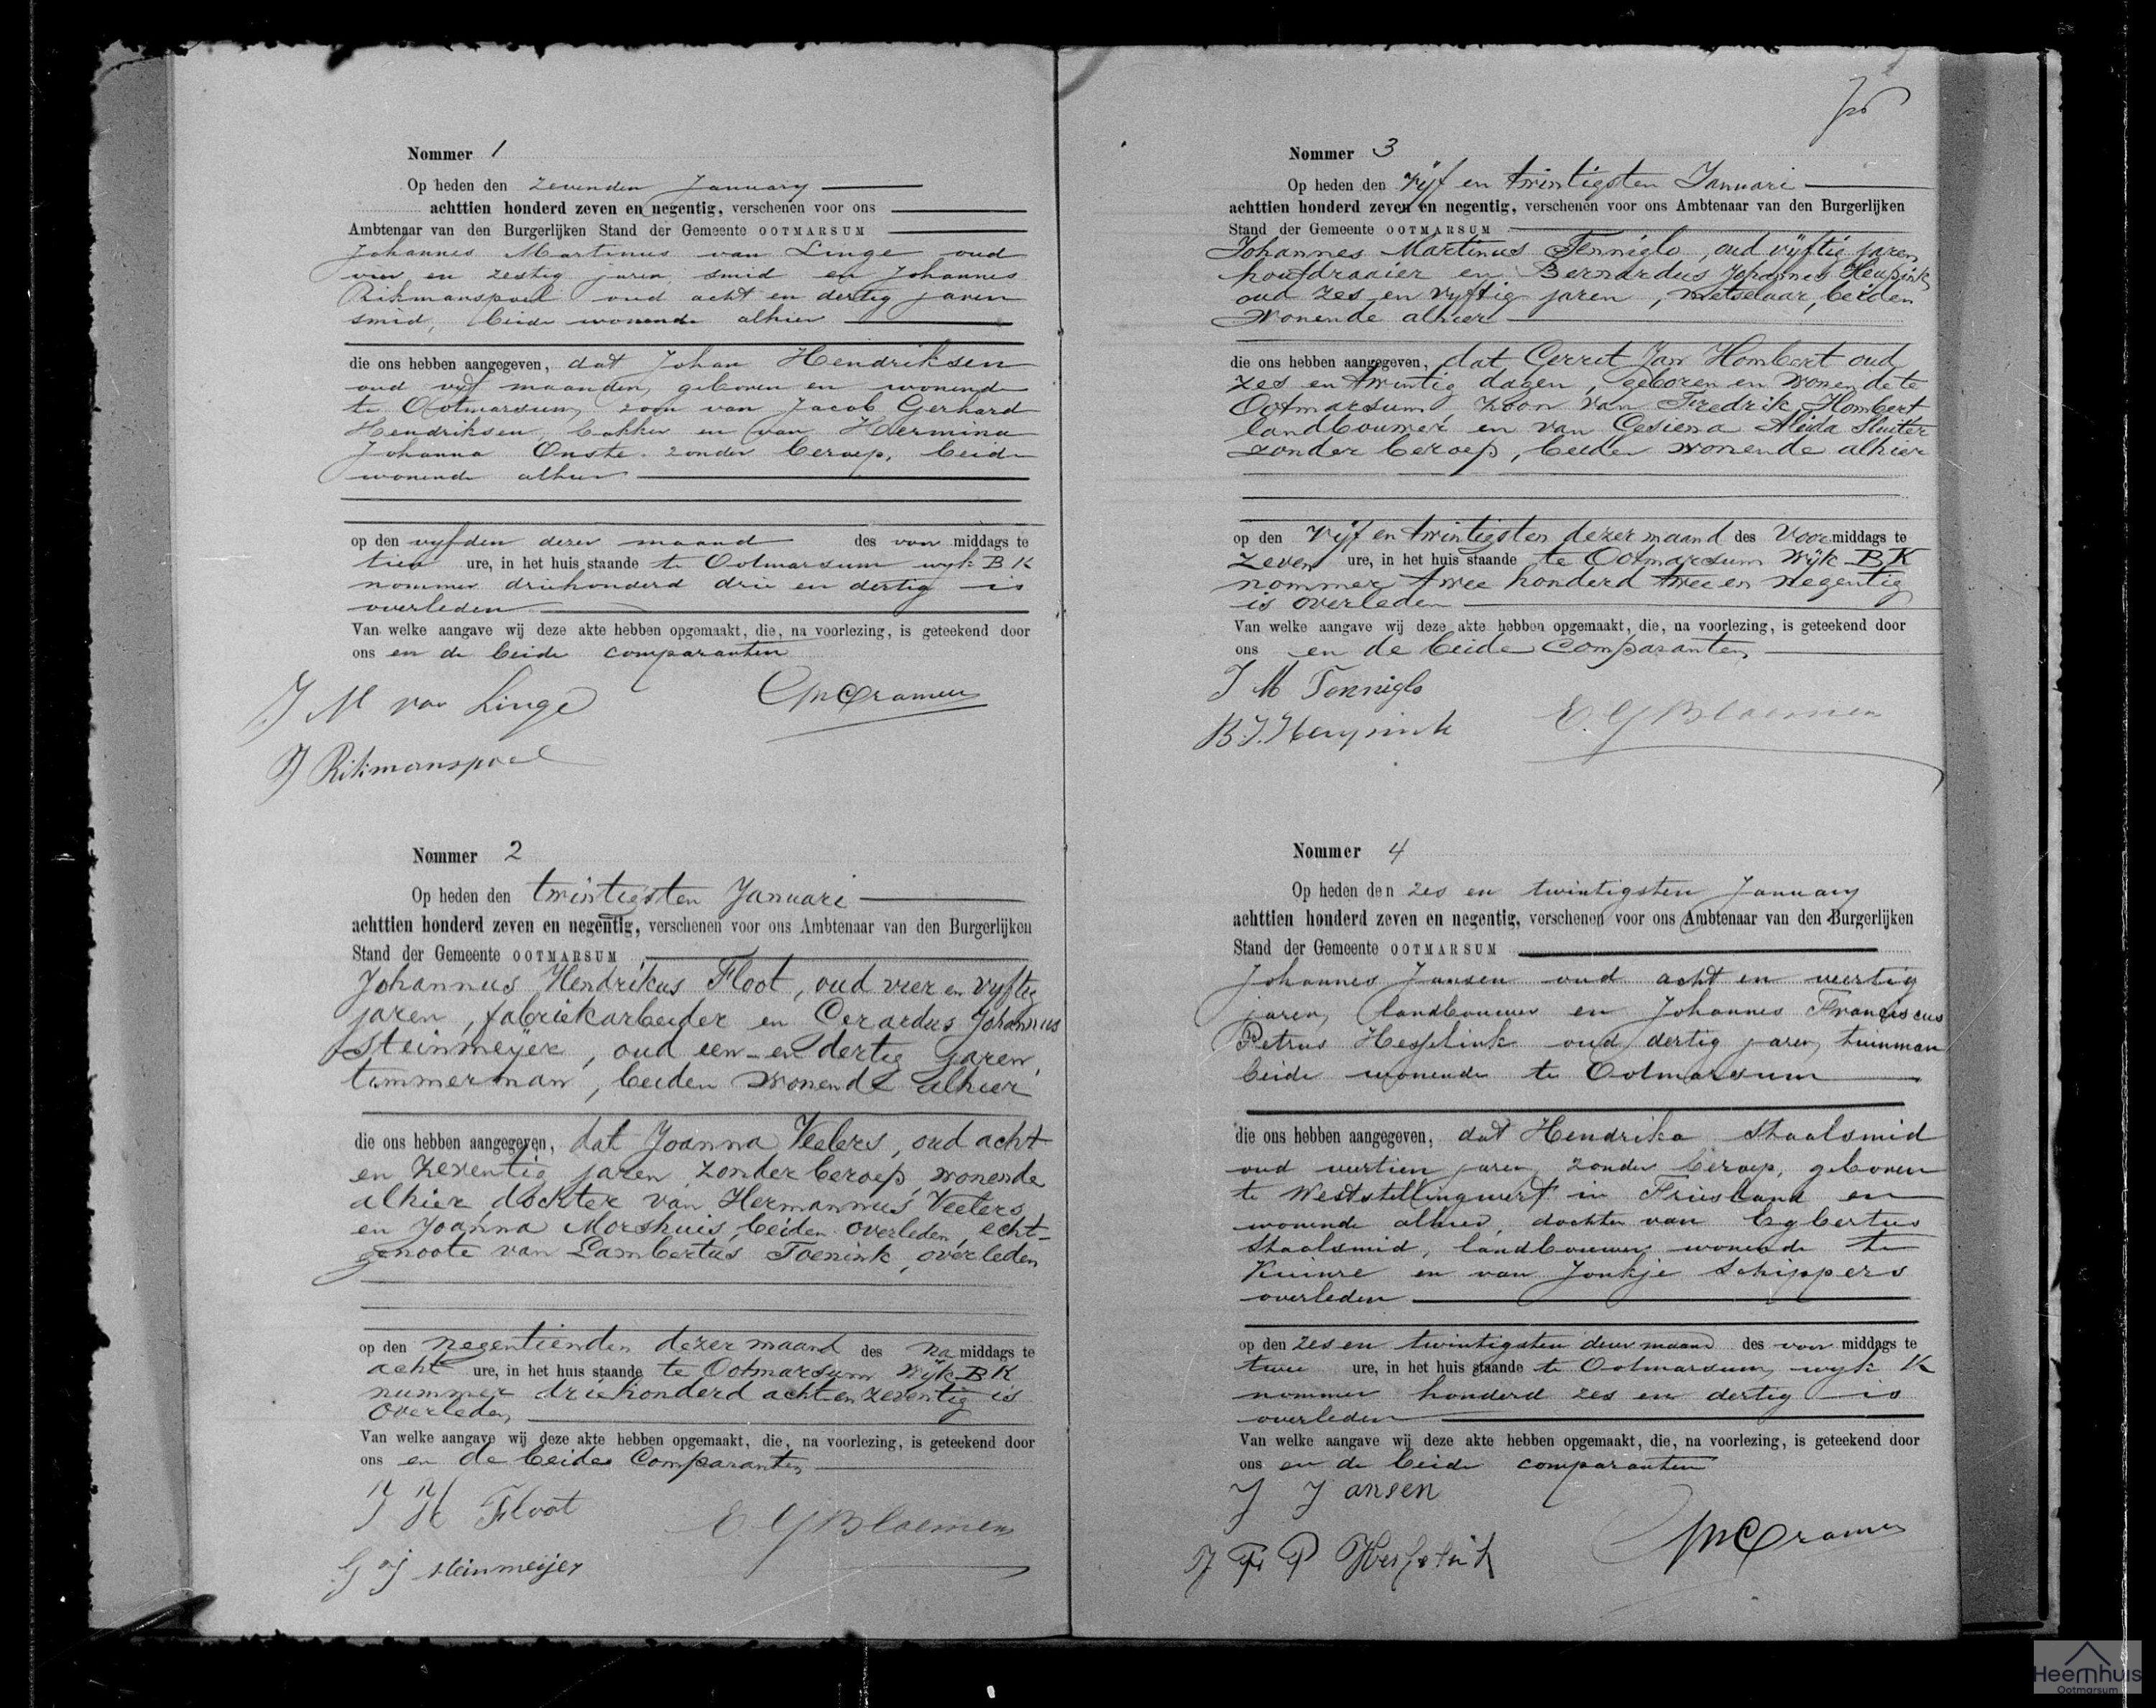 Nommer 1
Op heden den zevenden January
achttien honderd zeven en negentig, verschenen voor ons
Ambtenaar van den Burgerlijken Stand der Gemeente OOTMARSUM
Johannes Martinus van Linge oud
vier en zestig jaren, smid en Johannes
Rikmanspoel oud acht en dertig jaren
smid, beide wonende alhier
die ons hebben aangegeven, dat Johan Hendriksen
oud vyf maanden, geboren en wonende
te Ootmarsum, zoon van Jacob Gerhard
Hendriksen, bakker en van Hermina
Johanna Onste zonder beroep, beide
wonende alhier
op den vyfden dezer maand des voor middags te
tien ure, in het huis staande te Ootmarsum wyk B K
nommer driehonderd drie en dertig is
overleden
Van welke aangave wij deze akte hebben opgemaakt, die, na voorlezing, is geteekend door
ons en de beide comparanten
J M van Linge
Cramer
J Rikmanspoel
Nommer 2
Op heden den twintigsten Januari
achttien honderd zeven en negentig, verschenen voor ons Ambtenaar van den Burgerlijken
Stand der Gemeente OOTMARSUM
Johannus Hendrikus Floot, oud vier en vyftig
jaren, fabriekarbeider en Gerardus Johannus
Steinmeyer, oud een en dertig jaren,
timmerman, beiden wonende alhier
die ons hebben aangegeven, dat Joanna Veelers, oud acht
en zeventig jaren, zonder beroep, wonende
alhier, dochter van Hermannus Veelers
en Joanna Morshuis, beiden overleden, echt-
genoote van Lambertus Toenink, overleden
op den negentienden dezer maand des na middags te
acht ure, in het huis staande te Ootmarsum Wijk B K
nummer driehonderd acht en zeventig is
overleden
Van welke aangave wij deze akte hebben opgemaakt, die, na voorlezing, is geteekend door
ons en de beide Comparanten
J H Floot
E G Bloemen
G J Steinmeijer
Nommer 3
Op heden den Vijf en twintigsten Januari
achttien honderd zeven en negentig, verschenen voor ons Ambtenaar van den Burgerlijken
Stand der Gemeente OOTMARSUM
Johannes Martinus Tenniglo, oud vijftig jaren
houtdraaier en Bernardus Johannes Heupink
oud zes en vyftig jaren, metselaar, beiden
wonende alhier
die ons hebben aangegeven, dat Gerret Jan Hombert oud
zes en twintig dagen, geboren en wonende te
Ootmarsum zoon van Fredrik Hombert
landbouwer en van Gesiena Aleida Sluiter
zonder beroep, beiden wonende alhier
op den Vijf en twintigsten dezer maand des Voor middags te
zeven ure, in het huis staande te Ootmarsum Wijk B K
nommer twee honderd twee en negentig
is overleden
Van welke aangave wij deze akte hebben opgemaakt, die, na voorlezing, is geteekend door
ons en de beide Comparanten
J M Tenniglo
B. J. Heupink
E. G Bloemen
Nommer 4
Op heden den zes en twintigsten January
achttien honderd zeven en negentig, verschenen voor ons Ambtenaar van den Burgerlijken
Stand der Gemeente OOTMARSUM
Johannes Jansen oud acht en veertig
jaren, landbouwer en Johannes Franciscus
Petrus Hesselink oud dertig jaren, tuinman
beide wonende te Ootmarsum
die ons hebben aangegeven, dat Hendrika Staalsmid
oud veertien jaren, zonder beroep, geboren
te Weststellingwerf in Friesland en
wonende alhier, dochter van Egbertus
Staalsmid, landbouwer wonende te
Kuinre en van Jonkje Schippers
overleden
op den zes en twintigsten dezer maand des voor middags te
twee ure, in het huis staande te Ootmarsum, wyk K
nommer honderd zes en dertig is
overleden
Van welke aangave wij deze akte hebben opgemaakt, die, na voorlezing, is geteekend door
ons en de beide comparanten
J Jansen
Cramer
J F P Hesselink
Heemhuis
Ootmarsum